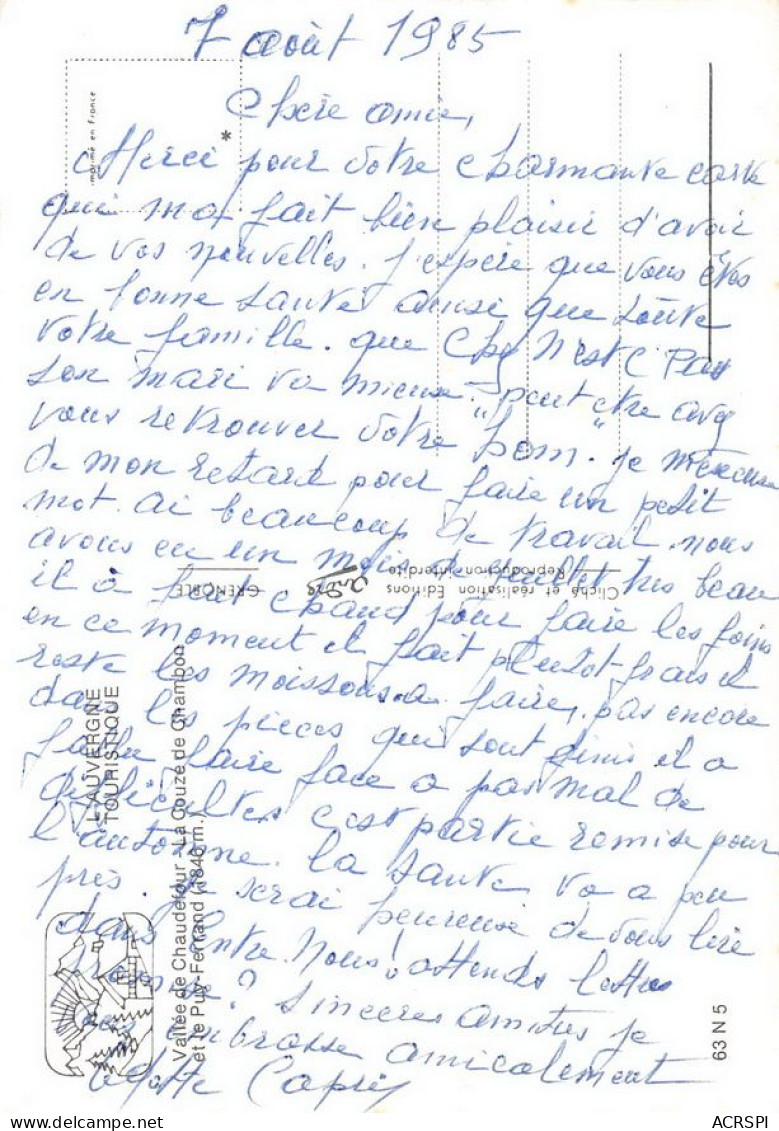 7 août 1985
Chère amie,
Merci pour votre charmante carte
qui ma fait bien plaisir d'avoir
de vos nouvelles. j'espère que vous êtes
en bonne santé ainsi que toute
votre famille. que N'est Pas
son mari va mieux. peut être
vous retrouver votre "bom". je
de mon retard pour faire un petit
mot. ai beaucoup de travail. nous
avons eu un mois de juillet très beau
il a fait chaud pour faire les foins
en ce moment il fait plutot frais il
reste les moissons a faire, pas encore
dans les pièces qui sont finis il a
fallu faire face a pas mal de
difficultés c'est partie remise pour
l'automne. la santé va a peu
près. je serai heureuse de vous lire
dans Entre Nous! attends lettre
? Sincères amitiés je
vous embrasse amicalement
imprimé en France
*
Cliché et réalisation Editions
Reproduction interdite
GRENOBLE
L'AUVERGNE
TOURISTIQUE
Vallée de Chaudefour - La Couze de Chambon
et le Puy-Ferrand (1846 m.)
63 N 5
ACRSPI